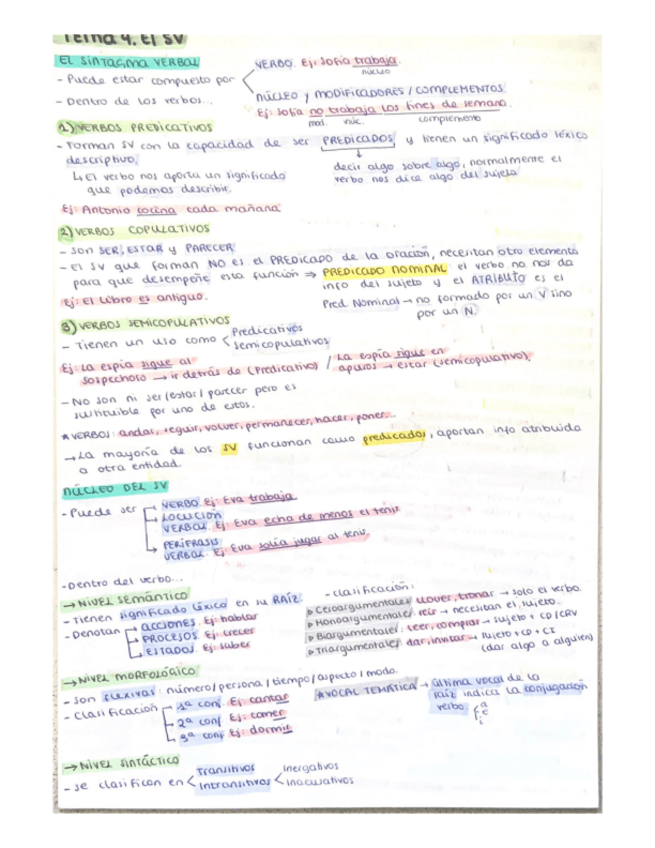 Tema 4. El SV
EL SINTAGMA VERBAL
- Puede estar compuesto por
VERBO. Ej: Sofía trabaja.
núcleo
NÚCLEO y MODIFICADORES / COMPLEMENTOS.
Ej: Sofía no trabaja los fines de semana.
mod. núc. complemento
- Dentro de los verbos...
1) VERBOS PREDICATIVOS
- Forman SV con la capacidad de ser PREDICADOS y tienen un significado léxico
descriptivo.
decir algo sobre algo, normalmente el
verbo nos dice algo del sujeto
↳ El verbo nos aporta un significado
que podemos describir.
Ej: Antonio cocina cada mañana
2) VERBOS COPULATIVOS
- Son SER, ESTAR y PARECER
- El SV que forman NO es el PREDICADO de la oración, necesitan otro elemento
para que desempeñe esta función ⇒ PREDICADO NOMINAL el verbo no nos da
info del sujeto y el ATRIBUTO es el
Ej: El libro es antiguo.
Pred. Nominal → no formado por un V sino
por un N.
3) VERBOS SEMICOPULATIVOS
- Tienen un uso como
Predicativos
semicopulativos
Ej: La espía sigue al
sospechoso → ir detrás de (Predicativo) / La espía sigue en
apuros → estar (semicopulativo).
- No son ni ser/estar/parecer pero es
sustituible por uno de estos.
* VERBOS: andar, seguir, volver, permanecer, hacer, poner...
→ La mayoría de los SV funcionan como predicados, aportan info atribuida
a otra entidad.
NÚCLEO DEL SV
- Puede ser
VERBO. Ej: Eva trabaja
LOCUCIÓN
VERBAL. Ej: Eva echa de menos el tenis
PERÍFRASIS
VERBAL. Ej: Eva solía jugar al tenis
- Dentro del verbo...
→ NIVEL SEMÁNTICO
- Tienen significado léxico en su RAÍZ.
- Denotan
ACCIONES. Ej: hablar
PROCESOS. Ej: crecer
ESTADOS. Ej: saber
- Clasificación:
▷ Ceroargumentales: llover, tronar → solo el verbo.
▷ Monoargumentales: reír → necesitan el sujeto.
▷ Biargumentales: leer, comprar → sujeto + CD/CRV
▷ Triargumentales: dar, invitar → sujeto + CD + CI
(dar algo a alguien)
→ NIVEL MORFOLÓGICO
- Son flexivas: número/persona/tiempo/aspecto/modo.
- Clasificación
1ª conj. Ej: cantar
2ª conj Ej: comer
3ª conj Ej: dormir
* VOCAL TEMÁTICA → última vocal de la
raíz indica la conjugación
verbo. a
e
i
→ NIVEL SINTÁCTICO
- Se clasifican en
Transitivos
Intransitivos
Inergativos
Inacusativos